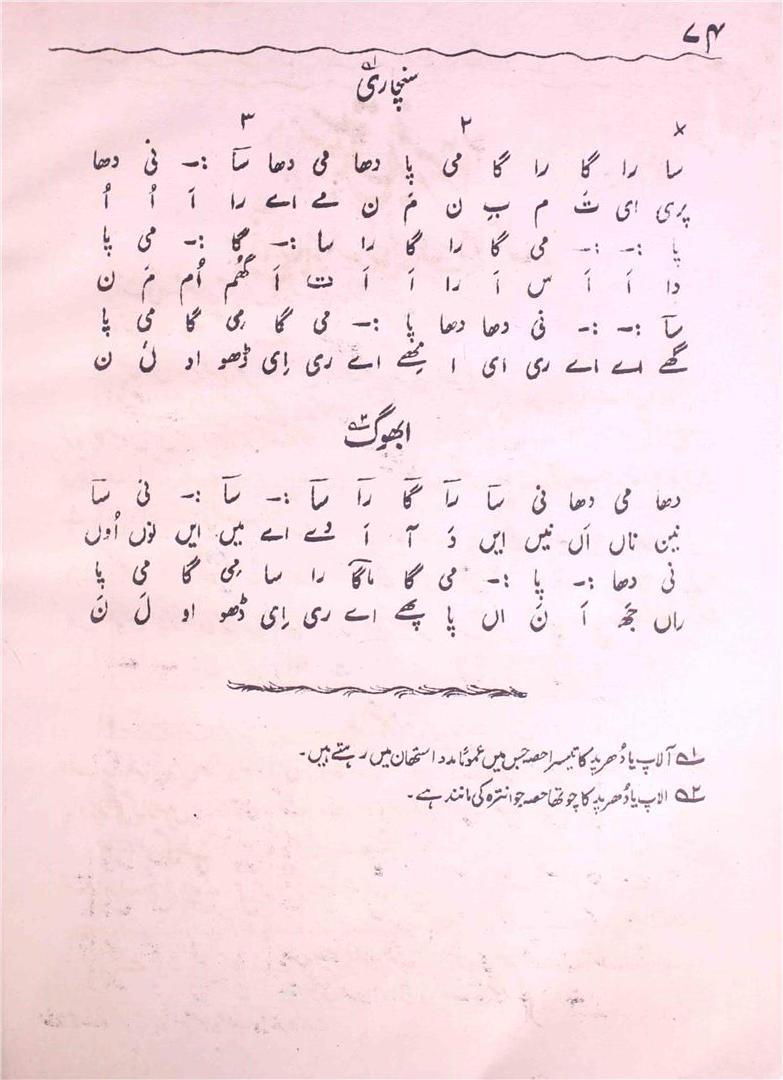 ۷۴
سنچاری ؂۱
x ۲ ۳
سا را گا را گا می پا دھا می دھا سآ :- نی دھا
پری ای تَ م بِ ن مَ ن مے اے را اَ اُ اُ
پا :- :- می گا را گا را سا :- گا :- می پا
دا اَ اَ س اَ را اَ اَ ت اَ گھُم اُم مَ ن
سآ :- :- نی دھا دھا پا :- می گا مِی گا می پا
گھے اے اے ری ای ا مِھے اے ری اِی ڈھو او لَ ن
ابھوگ ؂۲
دھا می دھا نی سآ رآ گآ رآ سآ :- سآ :- نی سآ
نین ناں اَں نیں ایں دَ آ اَ دے اے میں ایں لوٗں اُوں
نی دھا :- پا :- می گا ماگا را سا مِی گا می پا
راں جَھ اَ نَ اں پا پھے اے ری اِی ڈھو او لَ نَ
؂۱ آلاپ یا دُھرپد کا تیسرا حصہ جس میں عموماً مدد استھان میں رہتے ہیں۔
؂۲ الاپ یا دُھرپد کا چوتھا حصہ جو انترہ کی مانند ہے۔